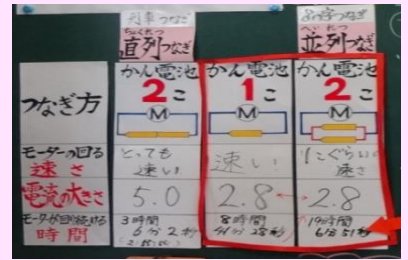 列車つなぎ
ちょくれつ
直列つなぎ
へいれつ
並列つなぎ
つなぎ方
かん電池
2こ
M
かん電池
1こ
M
かん電池
2こ
M
モーターの回る
速さ
とっても
速い
速い!
1こぐらいの
速さ
電流の大きさ
5.0
2.8
2.8
モーターが回り続ける
時間
3時間
6分2秒
8時間
41分28秒
19時間
6分51秒